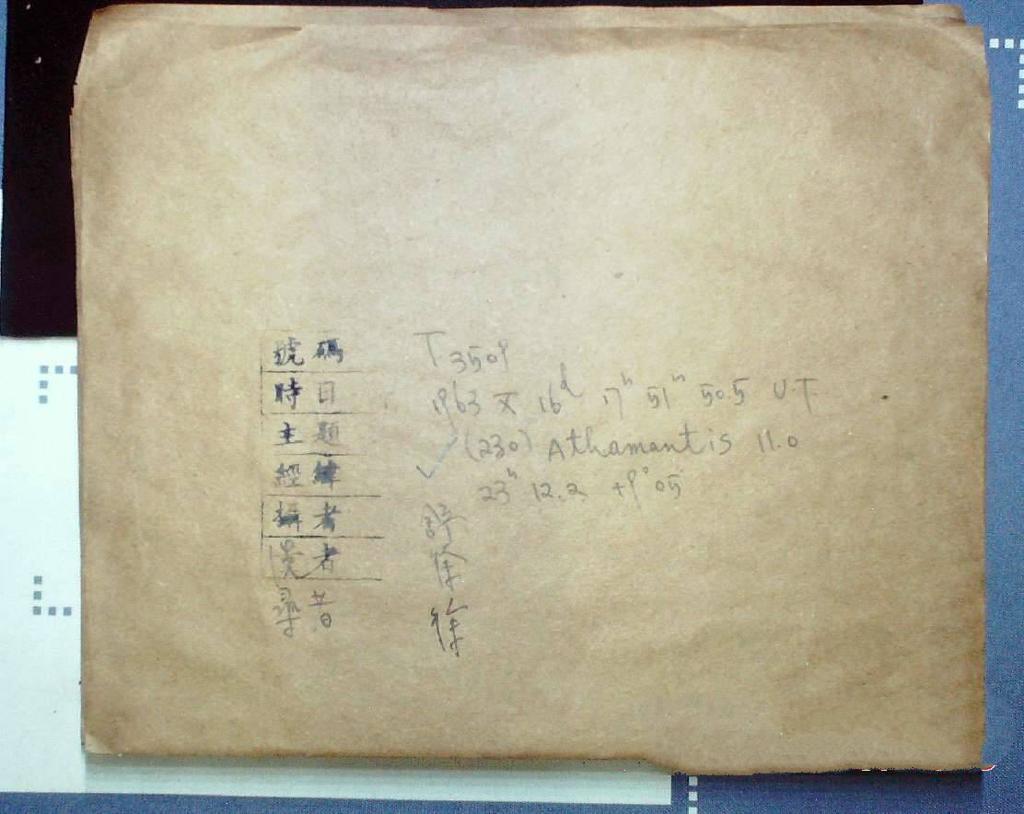 號碼 T 3509
時日 1963 X 16ᵈ 17ʰ 51ᵐ 50.5 U.T
主題 (230) Athamantis 11.0
經緯 23ʰ 12.2 +9°05'
攝者
者 徐
尋者 徐